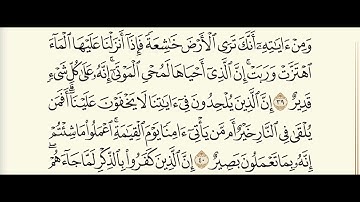 وَمِنْ ءَايَٰتِهِۦٓ أَنَّكَ تَرَى ٱلْأَرْضَ خَٰشِعَةً فَإِذَآ أَنزَلْنَا عَلَيْهَا ٱلْمَآءَ
ٱهْتَزَّتْ وَرَبَتْ ۚ إِنَّ ٱلَّذِىٓ أَحْيَاهَا لَمُحْىِ ٱلْمَوْتَىٰٓ ۚ إِنَّهُۥ عَلَىٰ كُلِّ شَىْءٍ
قَدِيرٌ ٣٩ إِنَّ ٱلَّذِينَ يُلْحِدُونَ فِىٓ ءَايَٰتِنَا لَا يَخْفَوْنَ عَلَيْنَآ ۗ أَفَمَن
يُلْقَىٰ فِى ٱلنَّارِ خَيْرٌ أَم مَّن يَأْتِىٓ ءَامِنًا يَوْمَ ٱلْقِيَٰمَةِ ۚ ٱعْمَلُوا۟ مَا شِئْتُمْ ۖ
إِنَّهُۥ بِمَا تَعْمَلُونَ بَصِيرٌ ٤٠ إِنَّ ٱلَّذِينَ كَفَرُوا۟ بِٱلذِّكْرِ لَمَّا جَآءَهُمْ ۖ